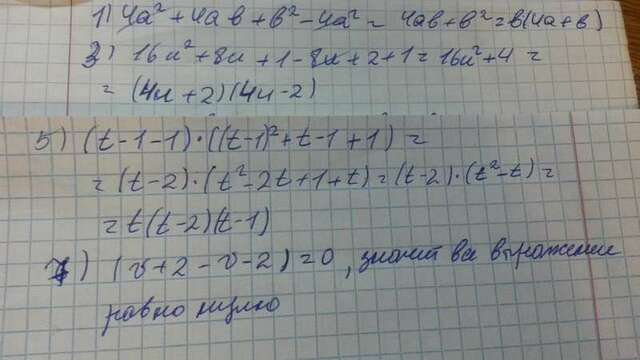 1) 4a² + 4aв + в² - 4a² = 4aв + в² = в(4a + в)
3) 16u² + 8u + 1 - 8u + 2 + 1 = 16u² + 4 =
= (4u + 2)(4u - 2)
5) (t - 1 - 1) · ((t-1)² + t - 1 + 1) =
= (t - 2) · (t² - 2t + 1 + t) = (t - 2) · (t² - t) =
= t(t - 2)(t - 1)
7) (v + 2 - v - 2) = 0, значит все выражение
равно нулю